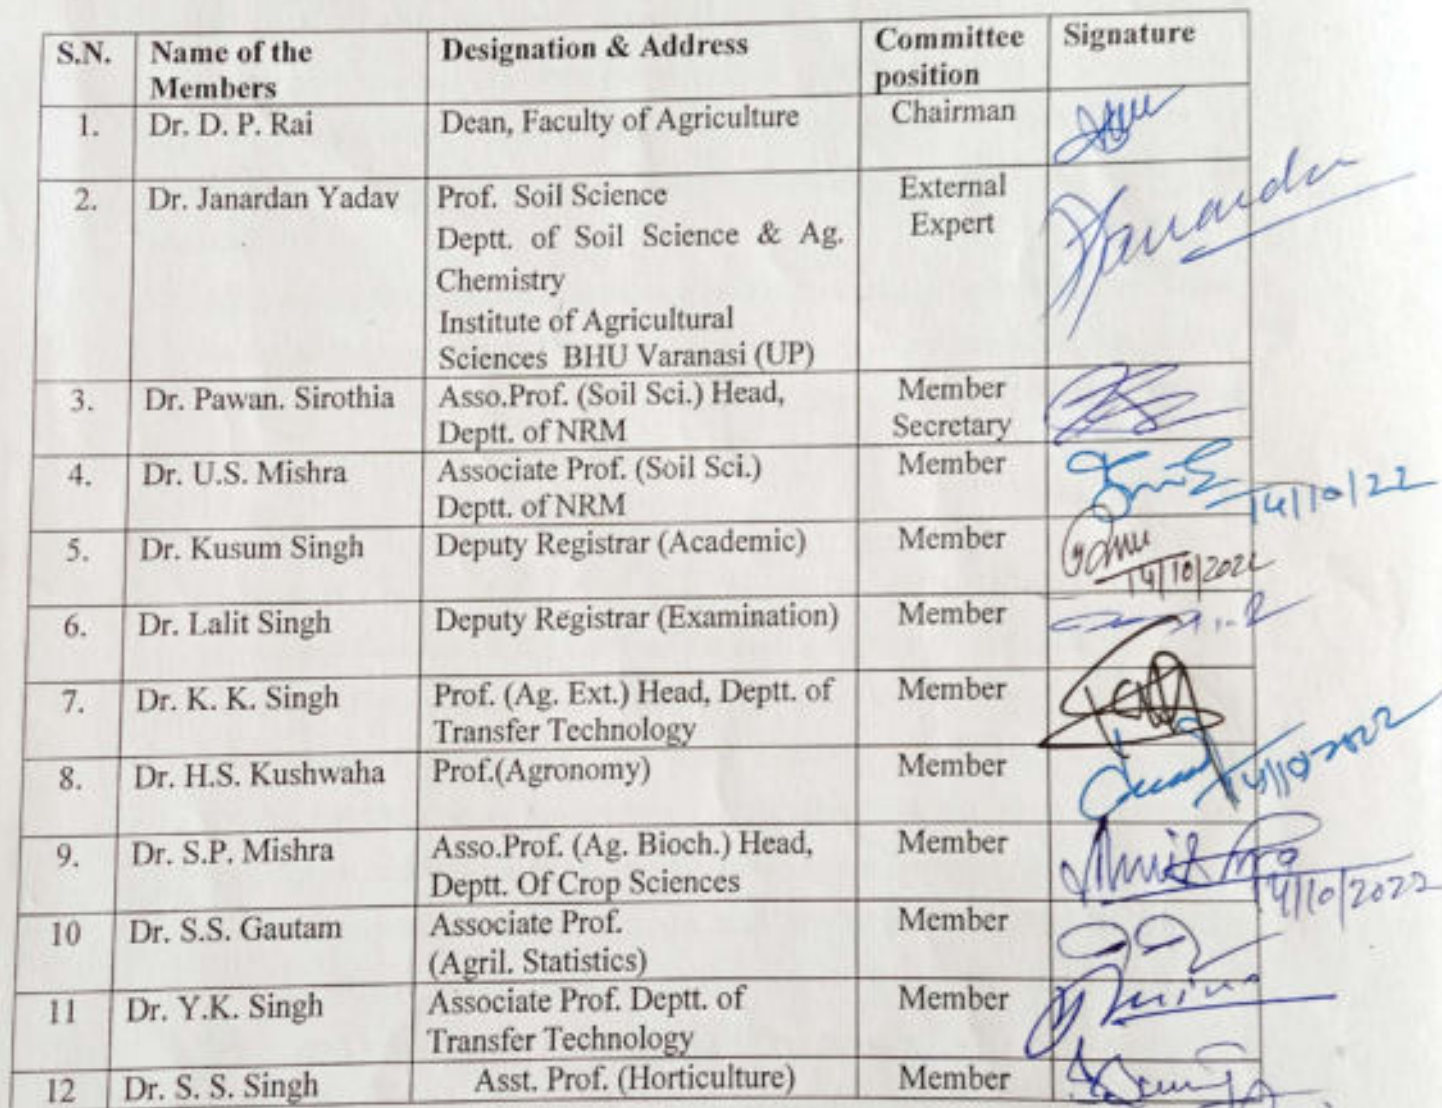 S.N. Name of the Members Designation & Address Committee position Signature
1. Dr. D. P. Rai Dean, Faculty of Agriculture Chairman
2. Dr. Janardan Yadav Prof. Soil Science External Expert
Deptt. of Soil Science & Ag.
Chemistry
Institute of Agricultural
Sciences BHU Varanasi (UP)
Janardan
3. Dr. Pawan. Sirothia Asso.Prof. (Soil Sci.) Head, Member Secretary
Deptt. of NRM
4. Dr. U.S. Mishra Associate Prof. (Soil Sci.) Member
Deptt. of NRM
14/10/22
5. Dr. Kusum Singh Deputy Registrar (Academic) Member
14/10/2022
6. Dr. Lalit Singh Deputy Registrar (Examination) Member
7. Dr. K. K. Singh Prof. (Ag. Ext.) Head, Deptt. of Member
Transfer Technology
8. Dr. H.S. Kushwaha Prof.(Agronomy) Member
14/10/2022
9. Dr. S.P. Mishra Asso.Prof. (Ag. Bioch.) Head, Member
Deptt. Of Crop Sciences
14/10/2022
10 Dr. S.S. Gautam Associate Prof. Member
(Agril. Statistics)
11 Dr. Y.K. Singh Associate Prof. Deptt. of Member
Transfer Technology
12 Dr. S. S. Singh Asst. Prof. (Horticulture) Member